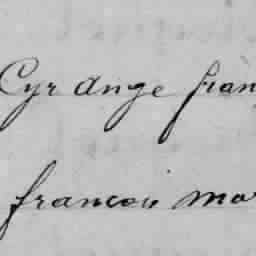 Cyr Ange fran
francois ma